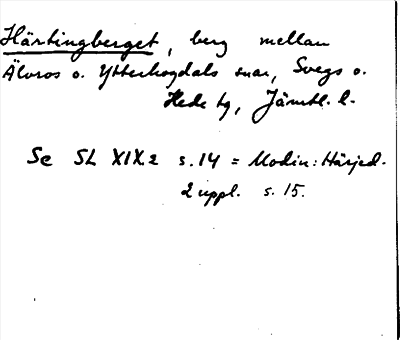 Härtingberget, berg mellan
Älvros o. Ytterhogdals snar, Svegs o.
Hede tg, Jämtl. l.
Se SL XIX.2 s. 14 = Modin: Härjed.
2 uppl. s. 15.